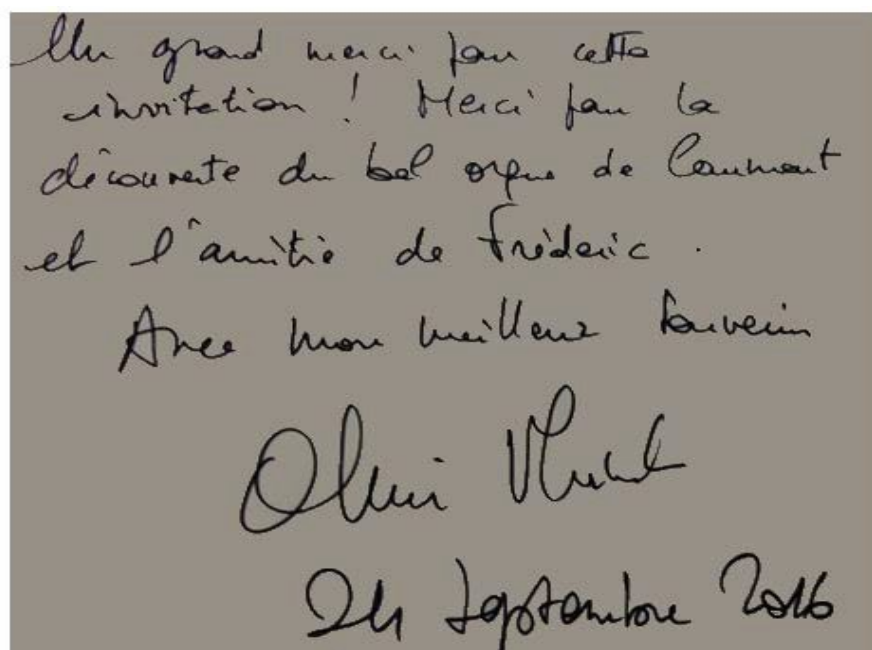 Un grand merci pour cette
invitation ! Merci pour la
découverte du bel orgue de
et l'amitié de Frédéric .
Avec mon meilleur souvenir
Olivier
24 septembre 2016